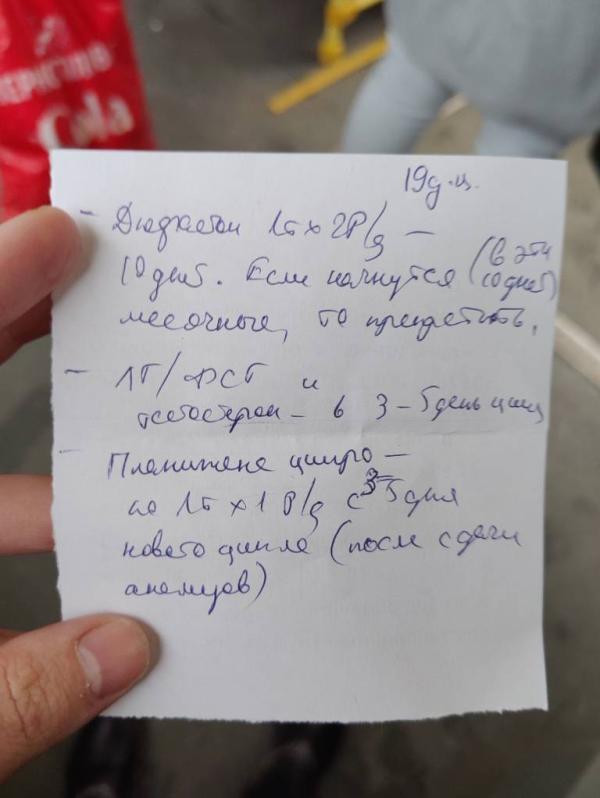 ЧЕРНІГІВ
Cola
19 д.ц.
- Дюфастон 1т х 2Р/д -
10 дней. Если начнутся (в эти 10 дней)
месячные, то прекратить.
- ЛГ/ФСГ и
тестостерон - в 3-5 день цикла
- Планижене ципро -
по 1т х 1 Р/д с 3-5 дня
нового цикла (после сдачи
анализов)